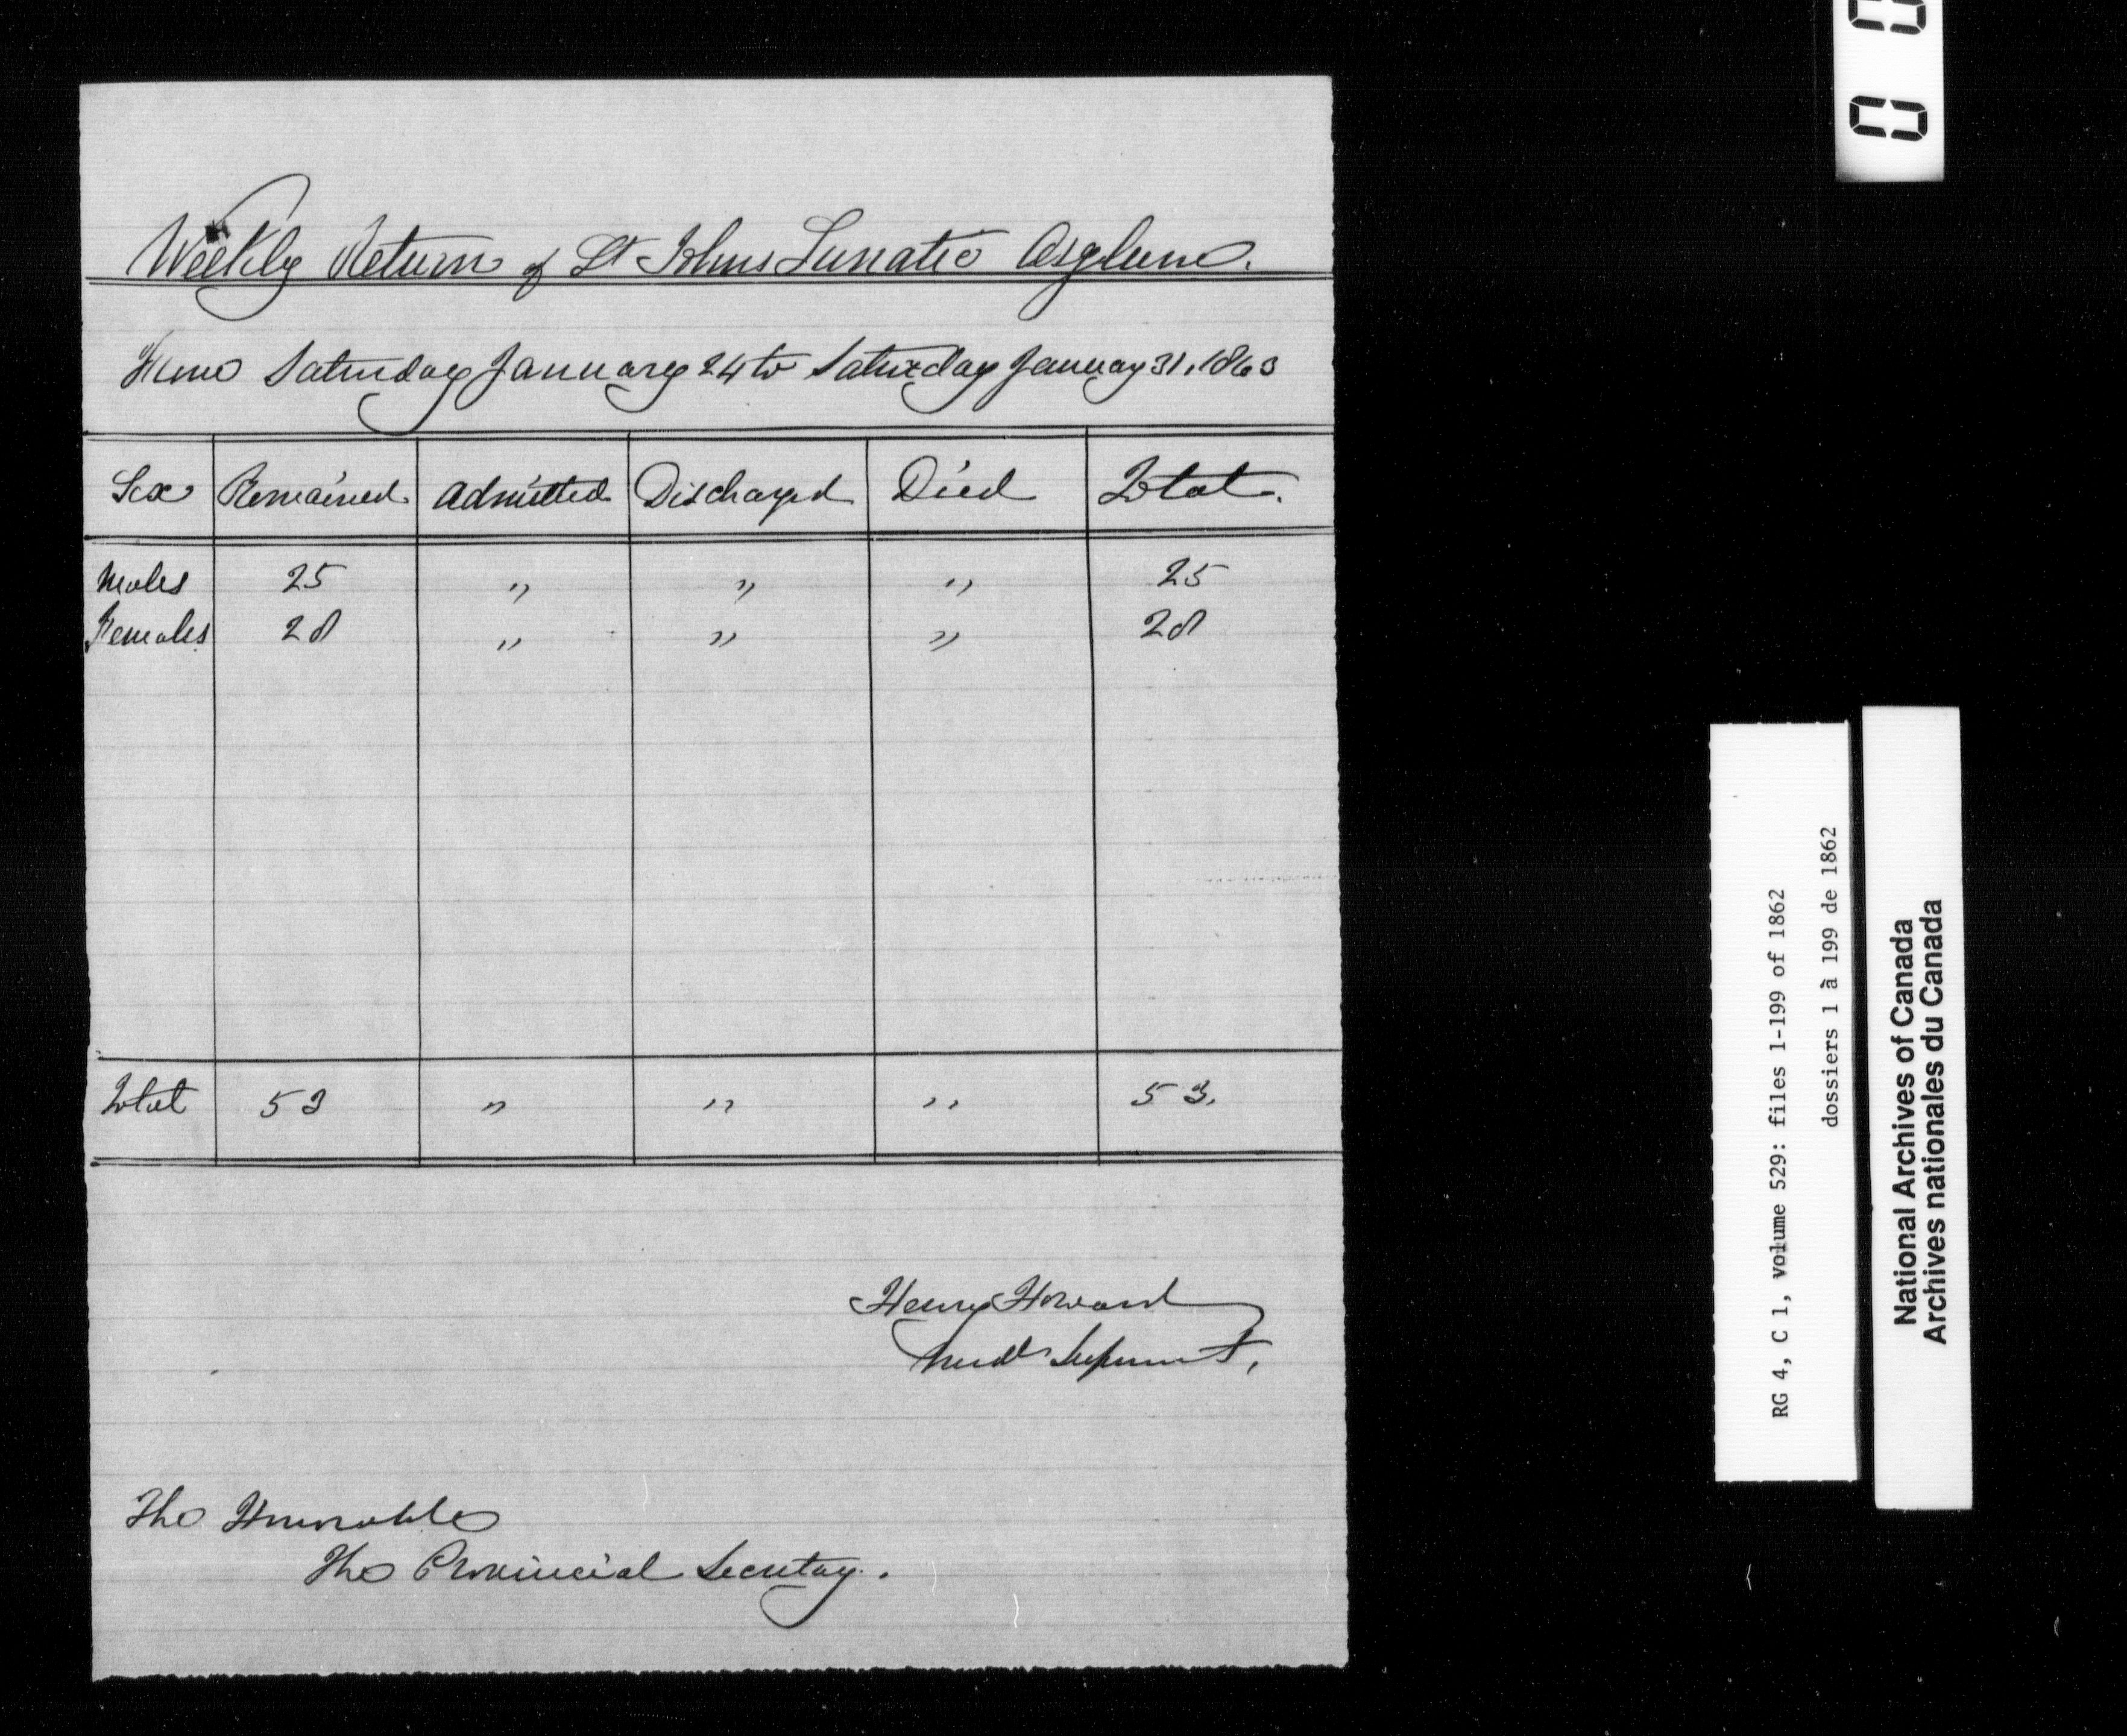 Weekly Return of St Johns Lunatic Asylum.
From Saturday January 24 to Saturday January 31. 1863
Sex Remained Admitted Discharged Died Total.
Males 25 " " " 25
Females 28 " " " 28
Total 53 " " " 53.
Henry Howard
Medl Superint,
The Honorable
The Provincial Secretary.
RG 4, C 1, volume 529: files 1-199 of 1862
dossiers 1 à 199 de 1862
National Archives of Canada
Archives nationales du Canada
0 0